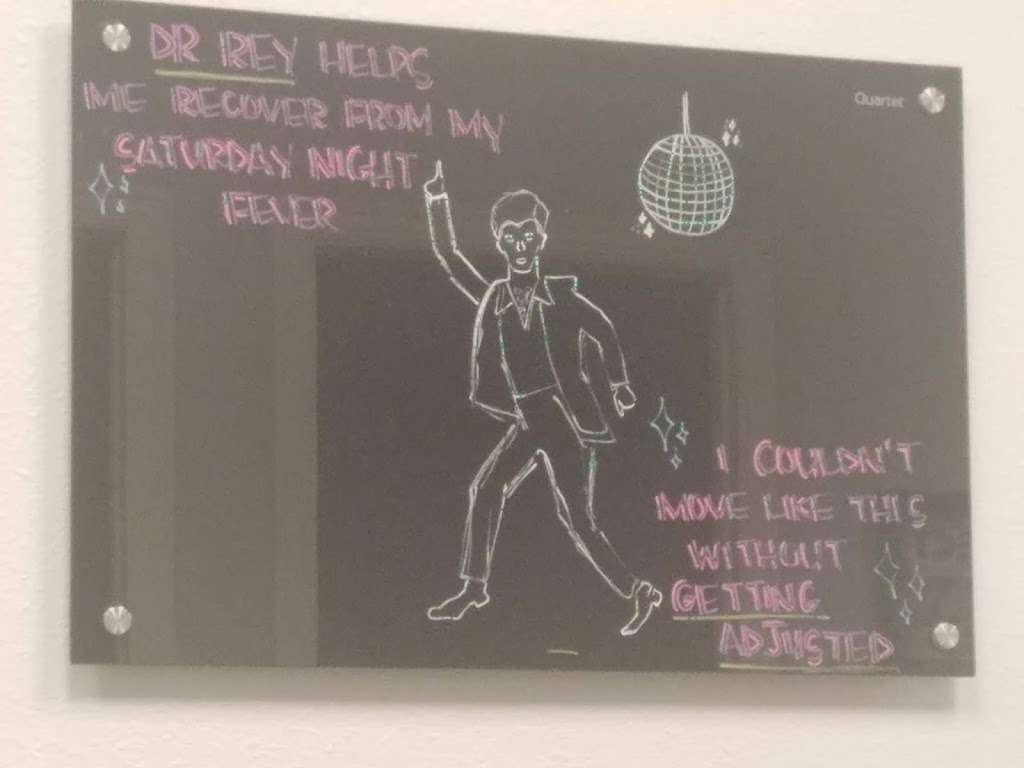 DR REY HELPS
ME RECOVER FROM MY
SATURDAY NIGHT
FEVER
Quartet
I COULDN'T
MOVE LIKE THIS
WITHOUT
GETTING
ADJUSTED